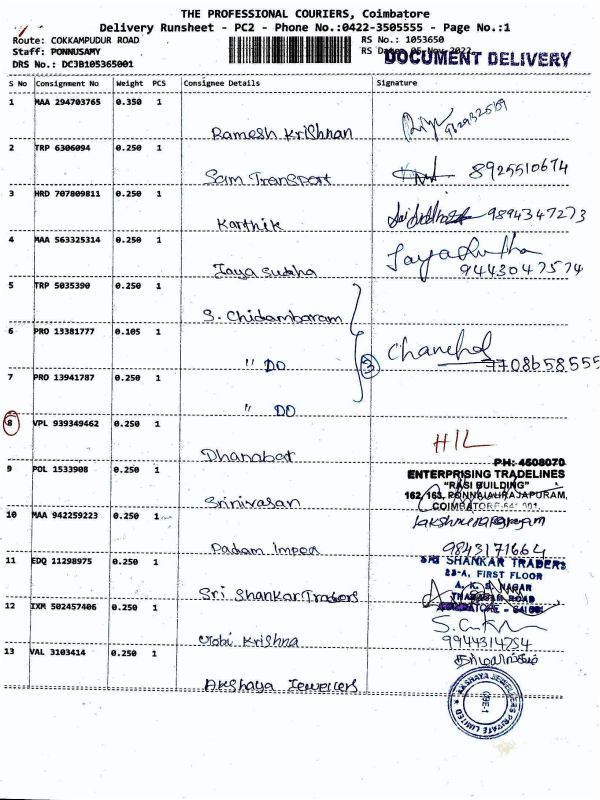 THE PROFESSIONAL COURIERS, Coimbatore
Delivery Runsheet - PC2 - Phone No.:0422-3505555 - Page No.:1
Route: COKKAMPUDUR ROAD
RS No.: 1053650
Staff: PONNUSAMY
RS Date: 05 Nov 2022
DOCUMENT DELIVERY
DRS No.: DC3B105365001
S No Consignment No Weight PCS Consignee Details Signature
1 MAA 294703765 0.350 1
Ramesh Krishnan
2 TRP 6306094 0.250 1
Sam Transport 8925510674
3 HRD 707809811 0.250 1
Karthik 9894347273
4 MAA 563325314 0.250 1
Jaya Sudha
9443047574
5 TRP 5035390 0.250 1
S. Chidambaram
6 PRO 13381777 0.105 1
" DO 3 7708658555
7 PRO 13941787 0.250 1
" DO
8 VPL 939349462 0.250 1
HIL
Dhanabat
PH: 4508070
9 POL 1533908 0.250 1
ENTERPRISING TRADELINES
"RASI BUILDING"
162, 163, PONNAIAURAJAPURAM,
Srinivasan
10 MAA 942259223 0.250 1
Padam Impea
9843171664
11 EDQ 11298975 0.250 1
SRI SHANKAR TRADERS
23-A, FIRST FLOOR
Sri Shankar Traders
12 IXM 502457406 0.250 1
Krishna
9944314754
13 VAL 3103414 0.250 1
Akshaya Jewellers
AKSHAYA JEWELLERS PRIVATE LIMITED